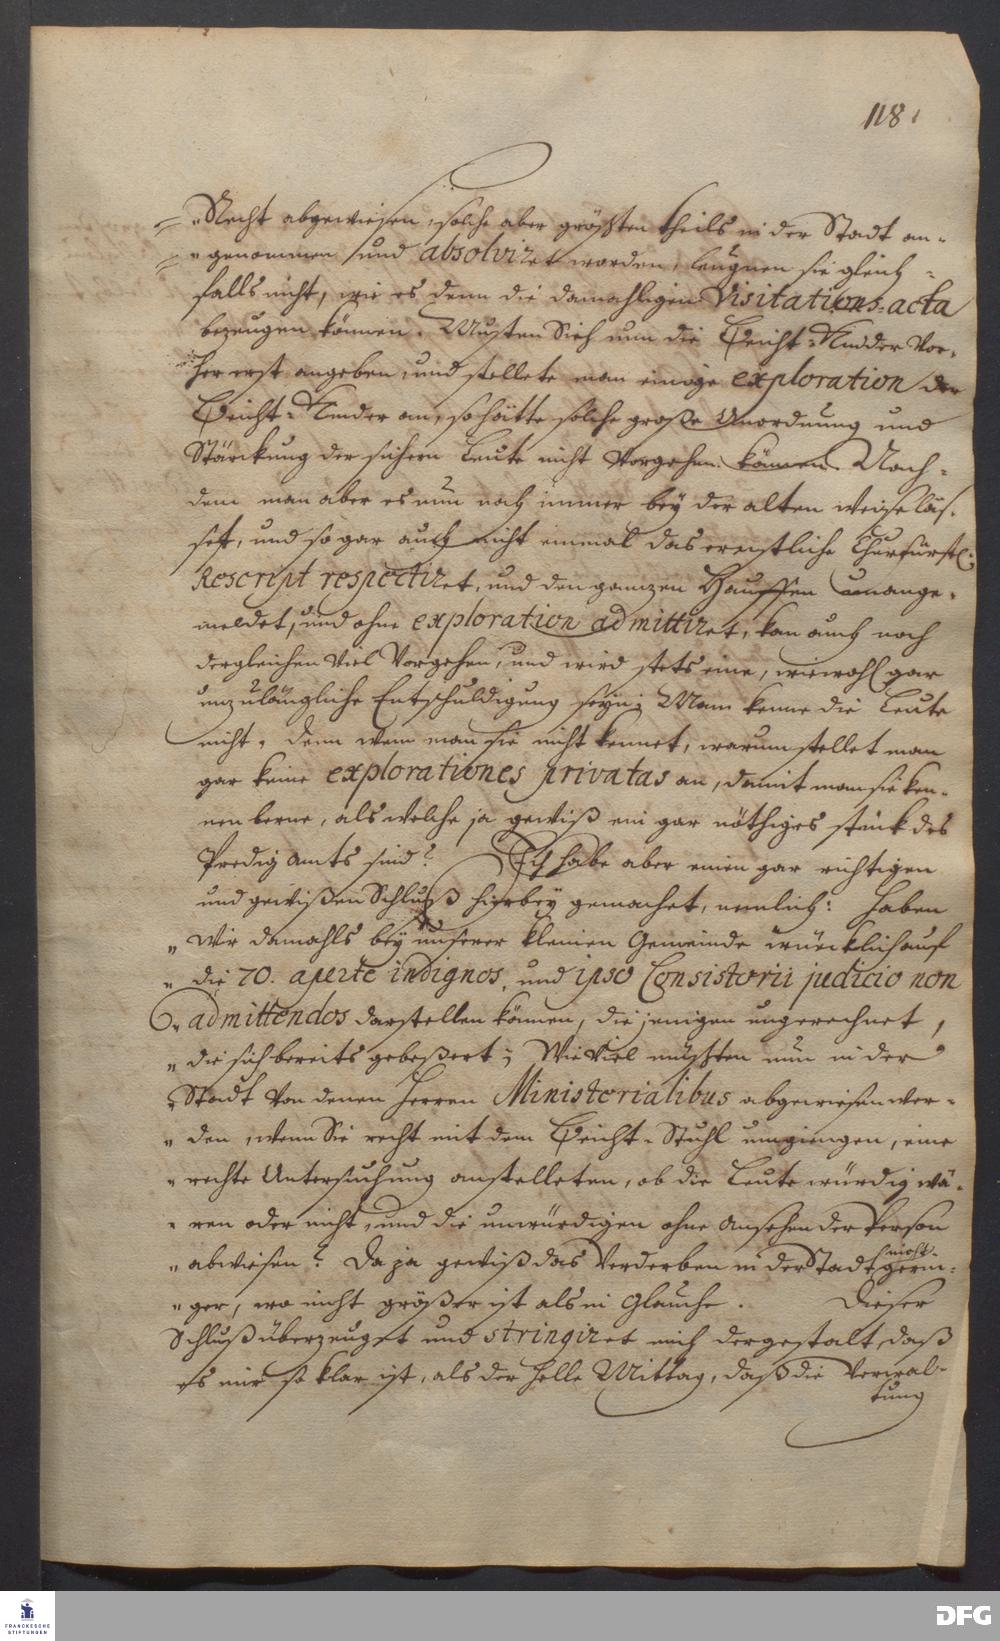 118.
„ Recht abgewiesen, solche aber größten theils in der Stadt an-
„ genommen und absolviret worden, leugnen sie gleich-
falls nicht, wie es denn die damahligen Visitations-acta
bezeugen können. Musten Sich nun die Beicht-Kinder Vor-
her erst angeben, und stellete man einige exploration der
Beicht-Kinder an, so hätte solche große Unordnung und
Stärckung der sichern Leute nicht Vorgehen können. Nach-
dem man aber es nun noch immer bey der alten weise läs-
set, und so gar auch nicht einmal das ernstliche Churfürstl.
Rescript respectiret, und den gantzen Hauffen unange-
meldet, und ohne exploration admittiret, kan auch noch
dergleichen Viel Vorgehen, und wird stets eine, wiewohl gar
unzulängliche Entschuldigung seyn: Man kenne die Leute
nicht. Denn wenn man sie nicht kennet, warum stellet man
gar keine explorationes privatas an, damit man sie ken-
nen lerne, als welche ja gewiß ein gar nöthiges stück des
Predig Amts sind? Ich habe aber einen gar richtigen
und gewißen Schluß hierbey gemachet, nemlich: Haben
„ Wir damahls bey unserer kleinen Gemeinde würcklich auf
„ die 70. aperte indignos, und ipso Consistorii judicio non
„ admittendos darstellen können, die jenigen ungerechnet,
„ die sich bereits gebeßert; Wie Viel müsten nun in der
„ Stadt Von denen Herren Ministerialibus abgewiesen wer-
„ den, wenn Sie recht mit dem Beicht-Stuhl umgiengen, eine
„ rechte Untersuchung anstelleten, ob die Leute würdig wä-
„ ren oder nicht, und die unwürdigen ohne Ansehen der Person
„ abwiesen? Da ja gewiß das Verderben in der Stadt nicht gerin-
„ ger, wo nicht größer ist als in Glauche. Dieser
Schluß überzeuget und stringiret mich dergestalt, daß
es mir so klar ist, als der helle Mittag, daß die Verwal-
tung
FRANCKESCHE
STIFTUNGEN
DFG